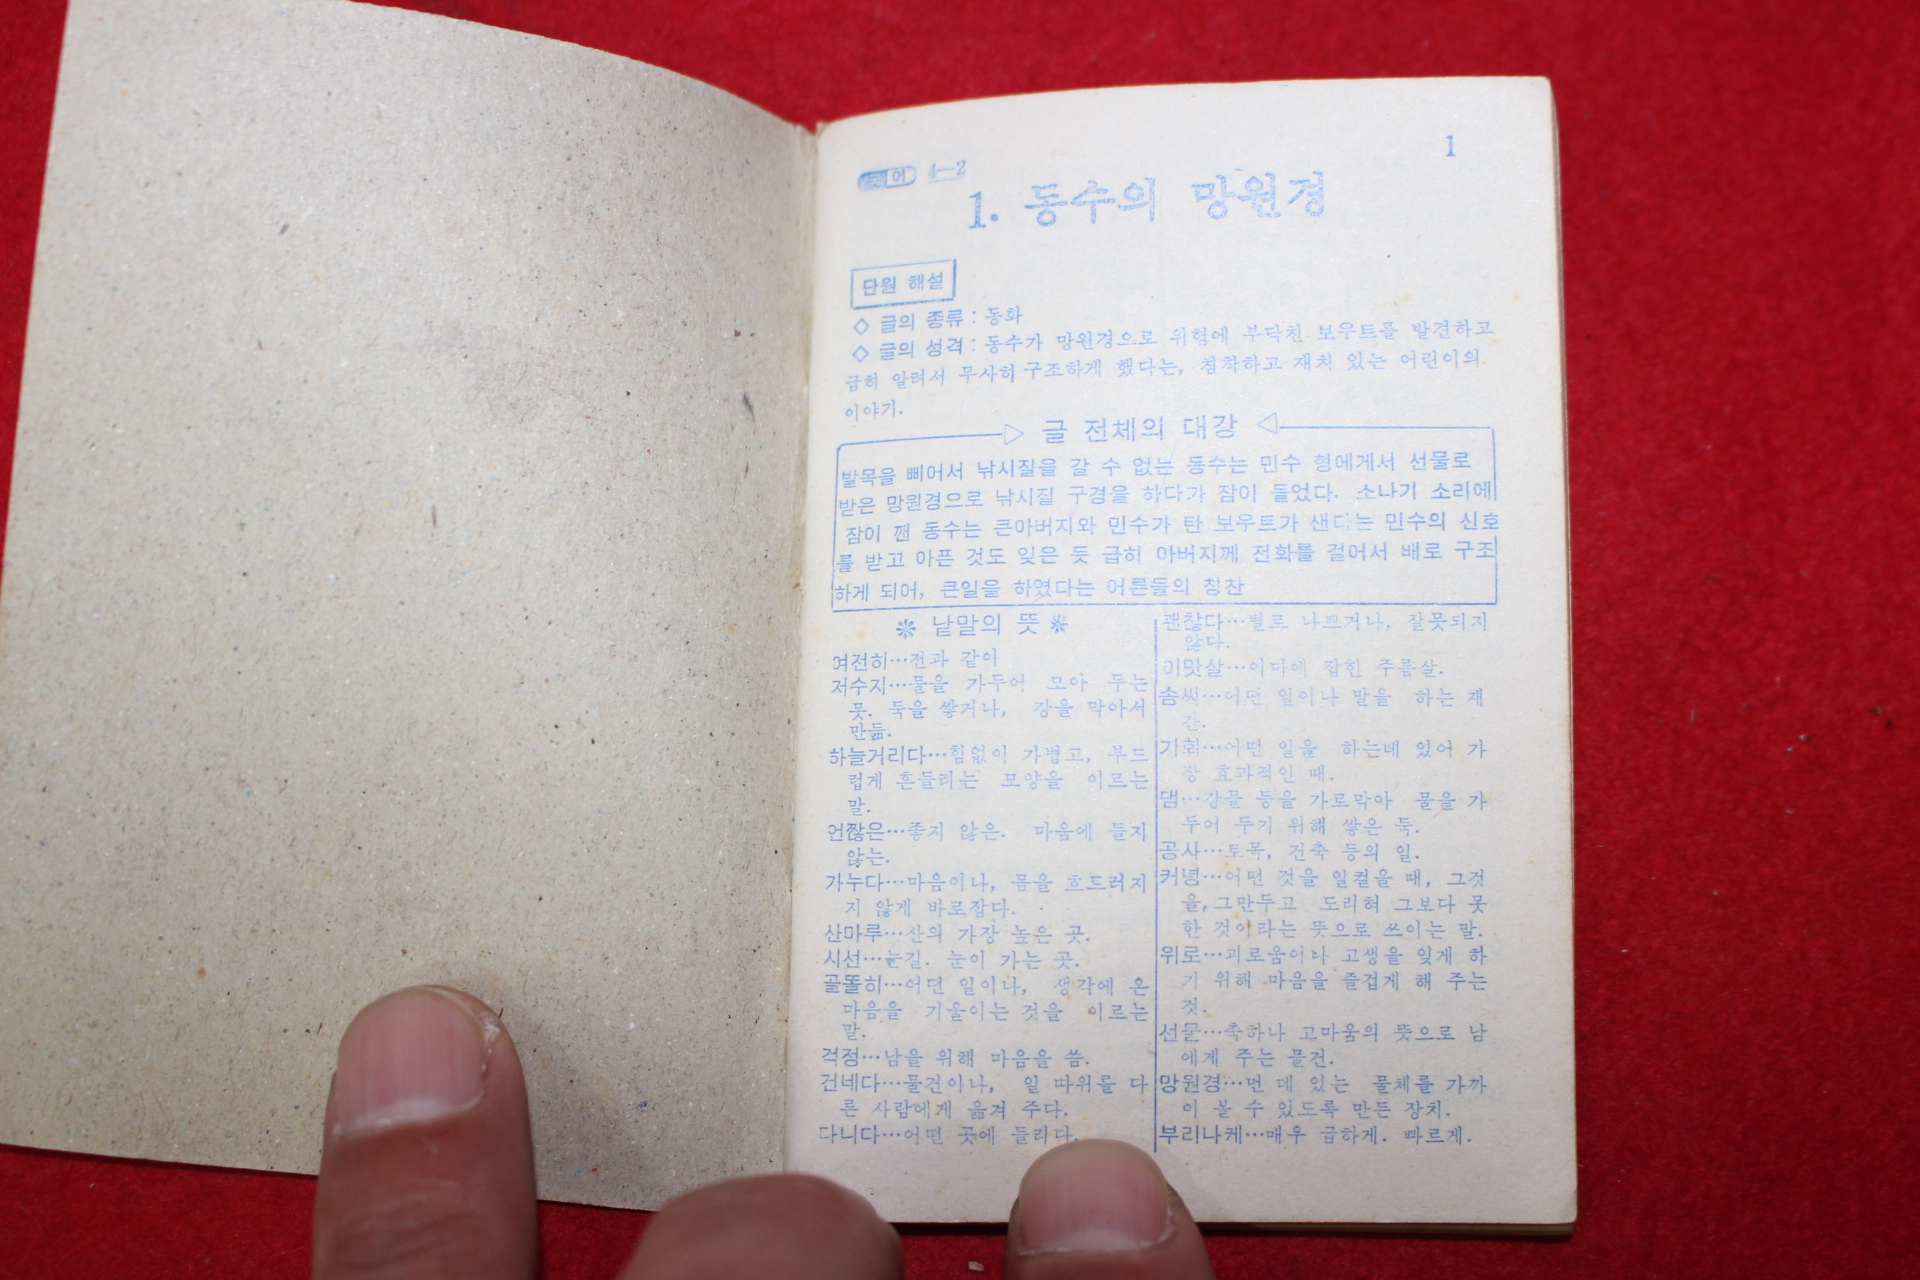 국어 4—2
1
1. 동수의 망원경
단원 해설
◇ 글의 종류 : 동화
◇ 글의 성격 : 동수가 망원경으로 위험에 부닥친 보우트를 발견하고
급히 알려서 무사히 구조하게 했다는, 침착하고 재치 있는 어린이의
이야기.
▷ 글 전체의 대강 ◁
발목을 삐어서 낚시질을 갈 수 없는 동수는 민수 형에게서 선물로
받은 망원경으로 낚시질 구경을 하다가 잠이 들었다. 소나기 소리에
잠이 깬 동수는 큰아버지와 민수가 탄 보우트가 샌다는 민수의 신호
를 받고 아픈 것도 잊은 듯 급히 아버지께 전화를 걸어서 배로 구조
하게 되어, 큰일을 하였다는 어른들의 칭찬
※ 낱말의 뜻 ※
여전히…전과 같아
저수지…물을 가두어 모아 두는
못. 둑을 쌓거나, 강을 막아서
만듦.
하늘거리다…힘없이 가볍고, 부드
럽게 흔들리는 모양을 이르는
말.
언짢은…좋지 않은. 마음에 들지
않는.
가누다…마음이나, 몸을 흐트러지
지 않게 바로잡다.
산마루…산의 가장 높은 곳.
시선…눈길. 눈이 가는 곳.
골똘히…어떤 일이나, 생각에 온
마음을 기울이는 것을 이르는
말.
걱정…남을 위해 마음을 씀.
건네다…물건이나, 일 따위를 다
른 사람에게 옮겨 주다.
다니다…어떤 곳에 들리다.
괜찮다…별로 나쁘거나, 잘못되지
않다.
이맛살…이마에 잡힌 주름살.
솜씨…어떤 일이나 말을 하는 재
간.
기회…어떤 일을 하는데 있어 가
장 효과적인 때.
댐…강물 등을 가로막아 물을 가
두어 두기 위해 쌓은 둑.
공사…토목, 건축 등의 일.
커녕…어떤 것을 일컬을 때, 그것
을,그만두고 도리혀 그보다 못
한 것이라는 뜻으로 쓰이는 말.
위로…괴로움이나 고생을 잊게 하
기 위해 마음을 즐겁게 해 주는
것.
선물…축하나 고마움의 뜻으로 남
에게 주는 물건.
망원경…먼 데 있는 물체를 가까
이 볼 수 있도록 만든 장치.
부리나케…매우 급하게. 빠르게.